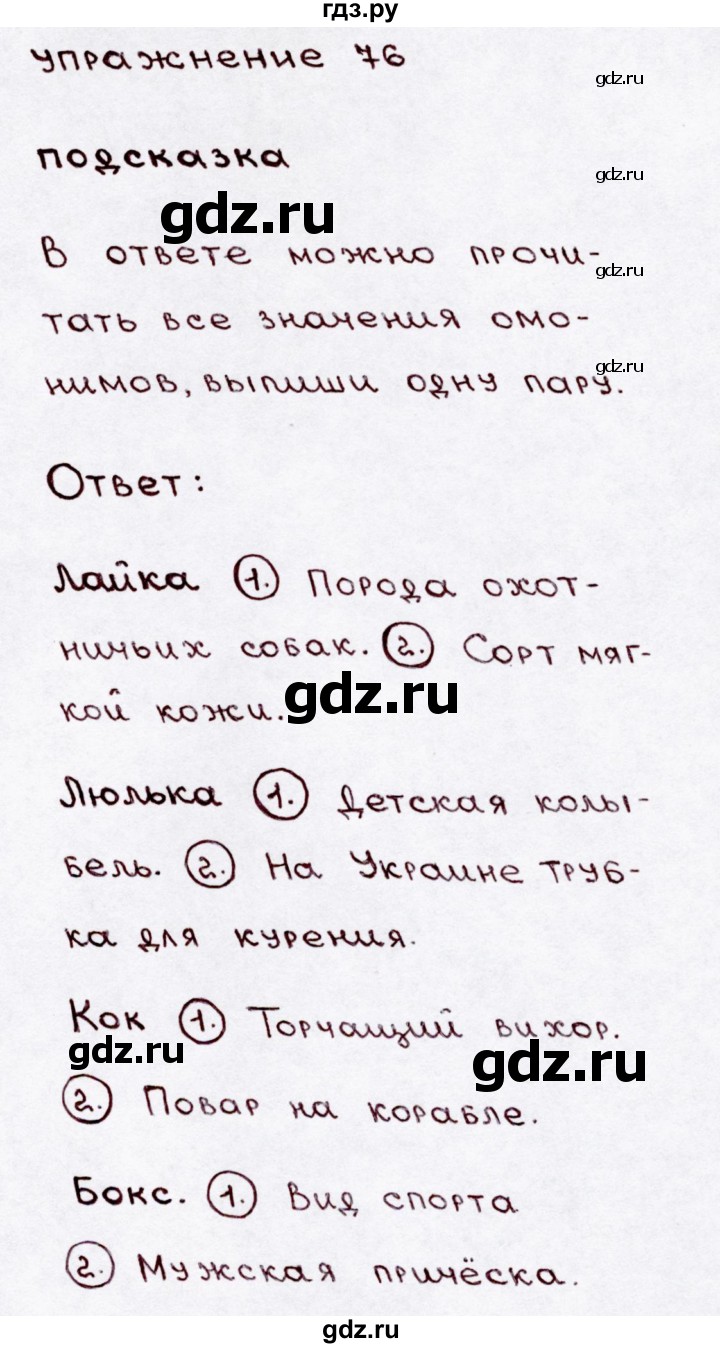 гдз.ру
упражнение 76
gdz.ru
подсказка
gdz.ru
gdz.ru
В ответе можно прочи-
gdz.ru
тать все значения омо-
gdz.ru
нимов, выпиши одну пару.
Ответ:
Лайка 1. Порода охот-
ничьих собак. 2. Сорт мяг-
кой кожи.
gdz.ru
Люлька 1. Детская колы-
бель. 2. На Украине труб-
ка для курения.
Кок 1. Торчащий вихор.
gdz.ru
gdz.ru
2. Повар на корабле.
Бокс. 1. Вид спорта
2. Мужская причёска.
gdz.ru